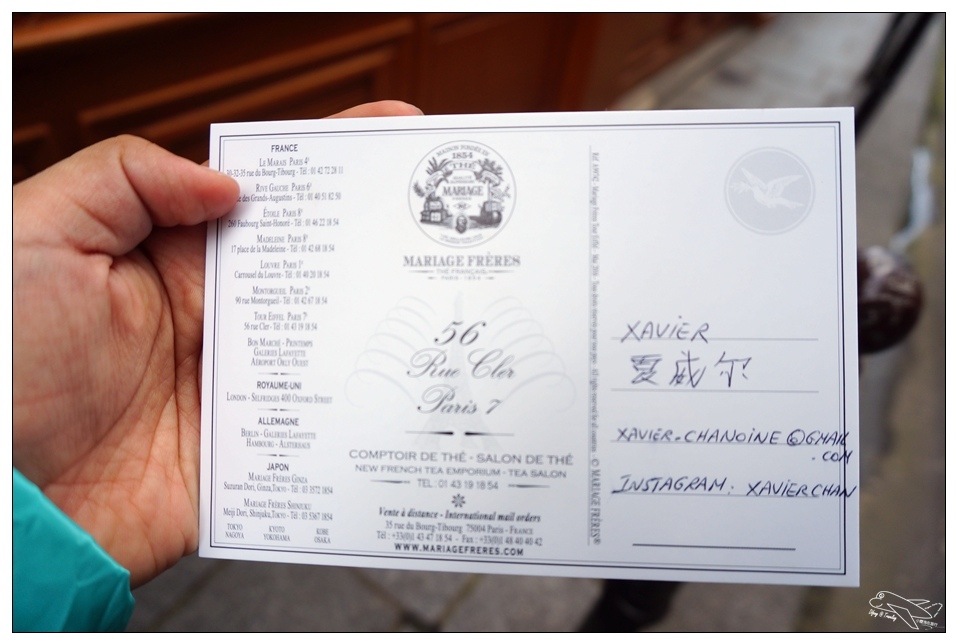 FRANCE
LE MARAIS PARIS 4e
30-32-35 rue du Bourg-Tibourg - Tél : 01 42 72 28 11
RIVE GAUCHE PARIS 6e
des Grands-Augustins - Tél : 01 40 51 82 50
ÉTOILE PARIS 8e
260 Faubourg Saint-Honoré - Tél : 01 46 22 18 54
MADELEINE PARIS 8e
17 place de la Madeleine - Tél : 01 42 68 18 54
LOUVRE PARIS 1er
Carrousel du Louvre - Tél : 01 40 20 18 54
MONTORGUEIL PARIS 2e
90 rue Montorgueil - Tél : 01 42 67 18 54
TOUR EIFFEL PARIS 7e
56 rue Cler - Tél : 01 43 19 18 54
BON MARCHÉ - PRINTEMPS
GALERIES LAFAYETTE
AÉROPORT ORLY OUEST
ROYAUME-UNI
LONDON - SELFRIDGES 400 OXFORD STREET
ALLEMAGNE
BERLIN - GALERIES LAFAYETTE
HAMBOURG - ALSTERHAUS
JAPON
MARIAGE FRÈRES GINZA
Suzuran Dori, Ginza, Tokyo - Tél : 03 3572 1854
MARIAGE FRÈRES SHINJUKU
Meiji Dori, Shinjuku, Tokyo - Tél : 03 5367 1854
TOKYO KYOTO KOBE
NAGOYA YOKOHAMA OSAKA
MAISON FONDÉE EN
1854
THÉ
MARIAGE
MARIAGE FRÈRES
THÉ FRANÇAIS
PARIS · 1854
56
Rue Cler
Paris 7
COMPTOIR DE THÉ - SALON DE THÉ
NEW FRENCH TEA EMPORIUM - TEA SALON
TEL : 01 43 19 18 54
Vente à distance - International mail orders
35 rue du Bourg-Tibourg 75004 Paris - FRANCE
Tél : +33(0)1 43 47 18 54 - Fax : +33(0)1 48 40 40 42
WWW.MARIAGEFRERES.COM
© MARIAGE FRÈRES®
XAVIER
夏威尔
XAVIER.CHANOINE@GMAIL
.COM
INSTAGRAM: XAVIERCHAN